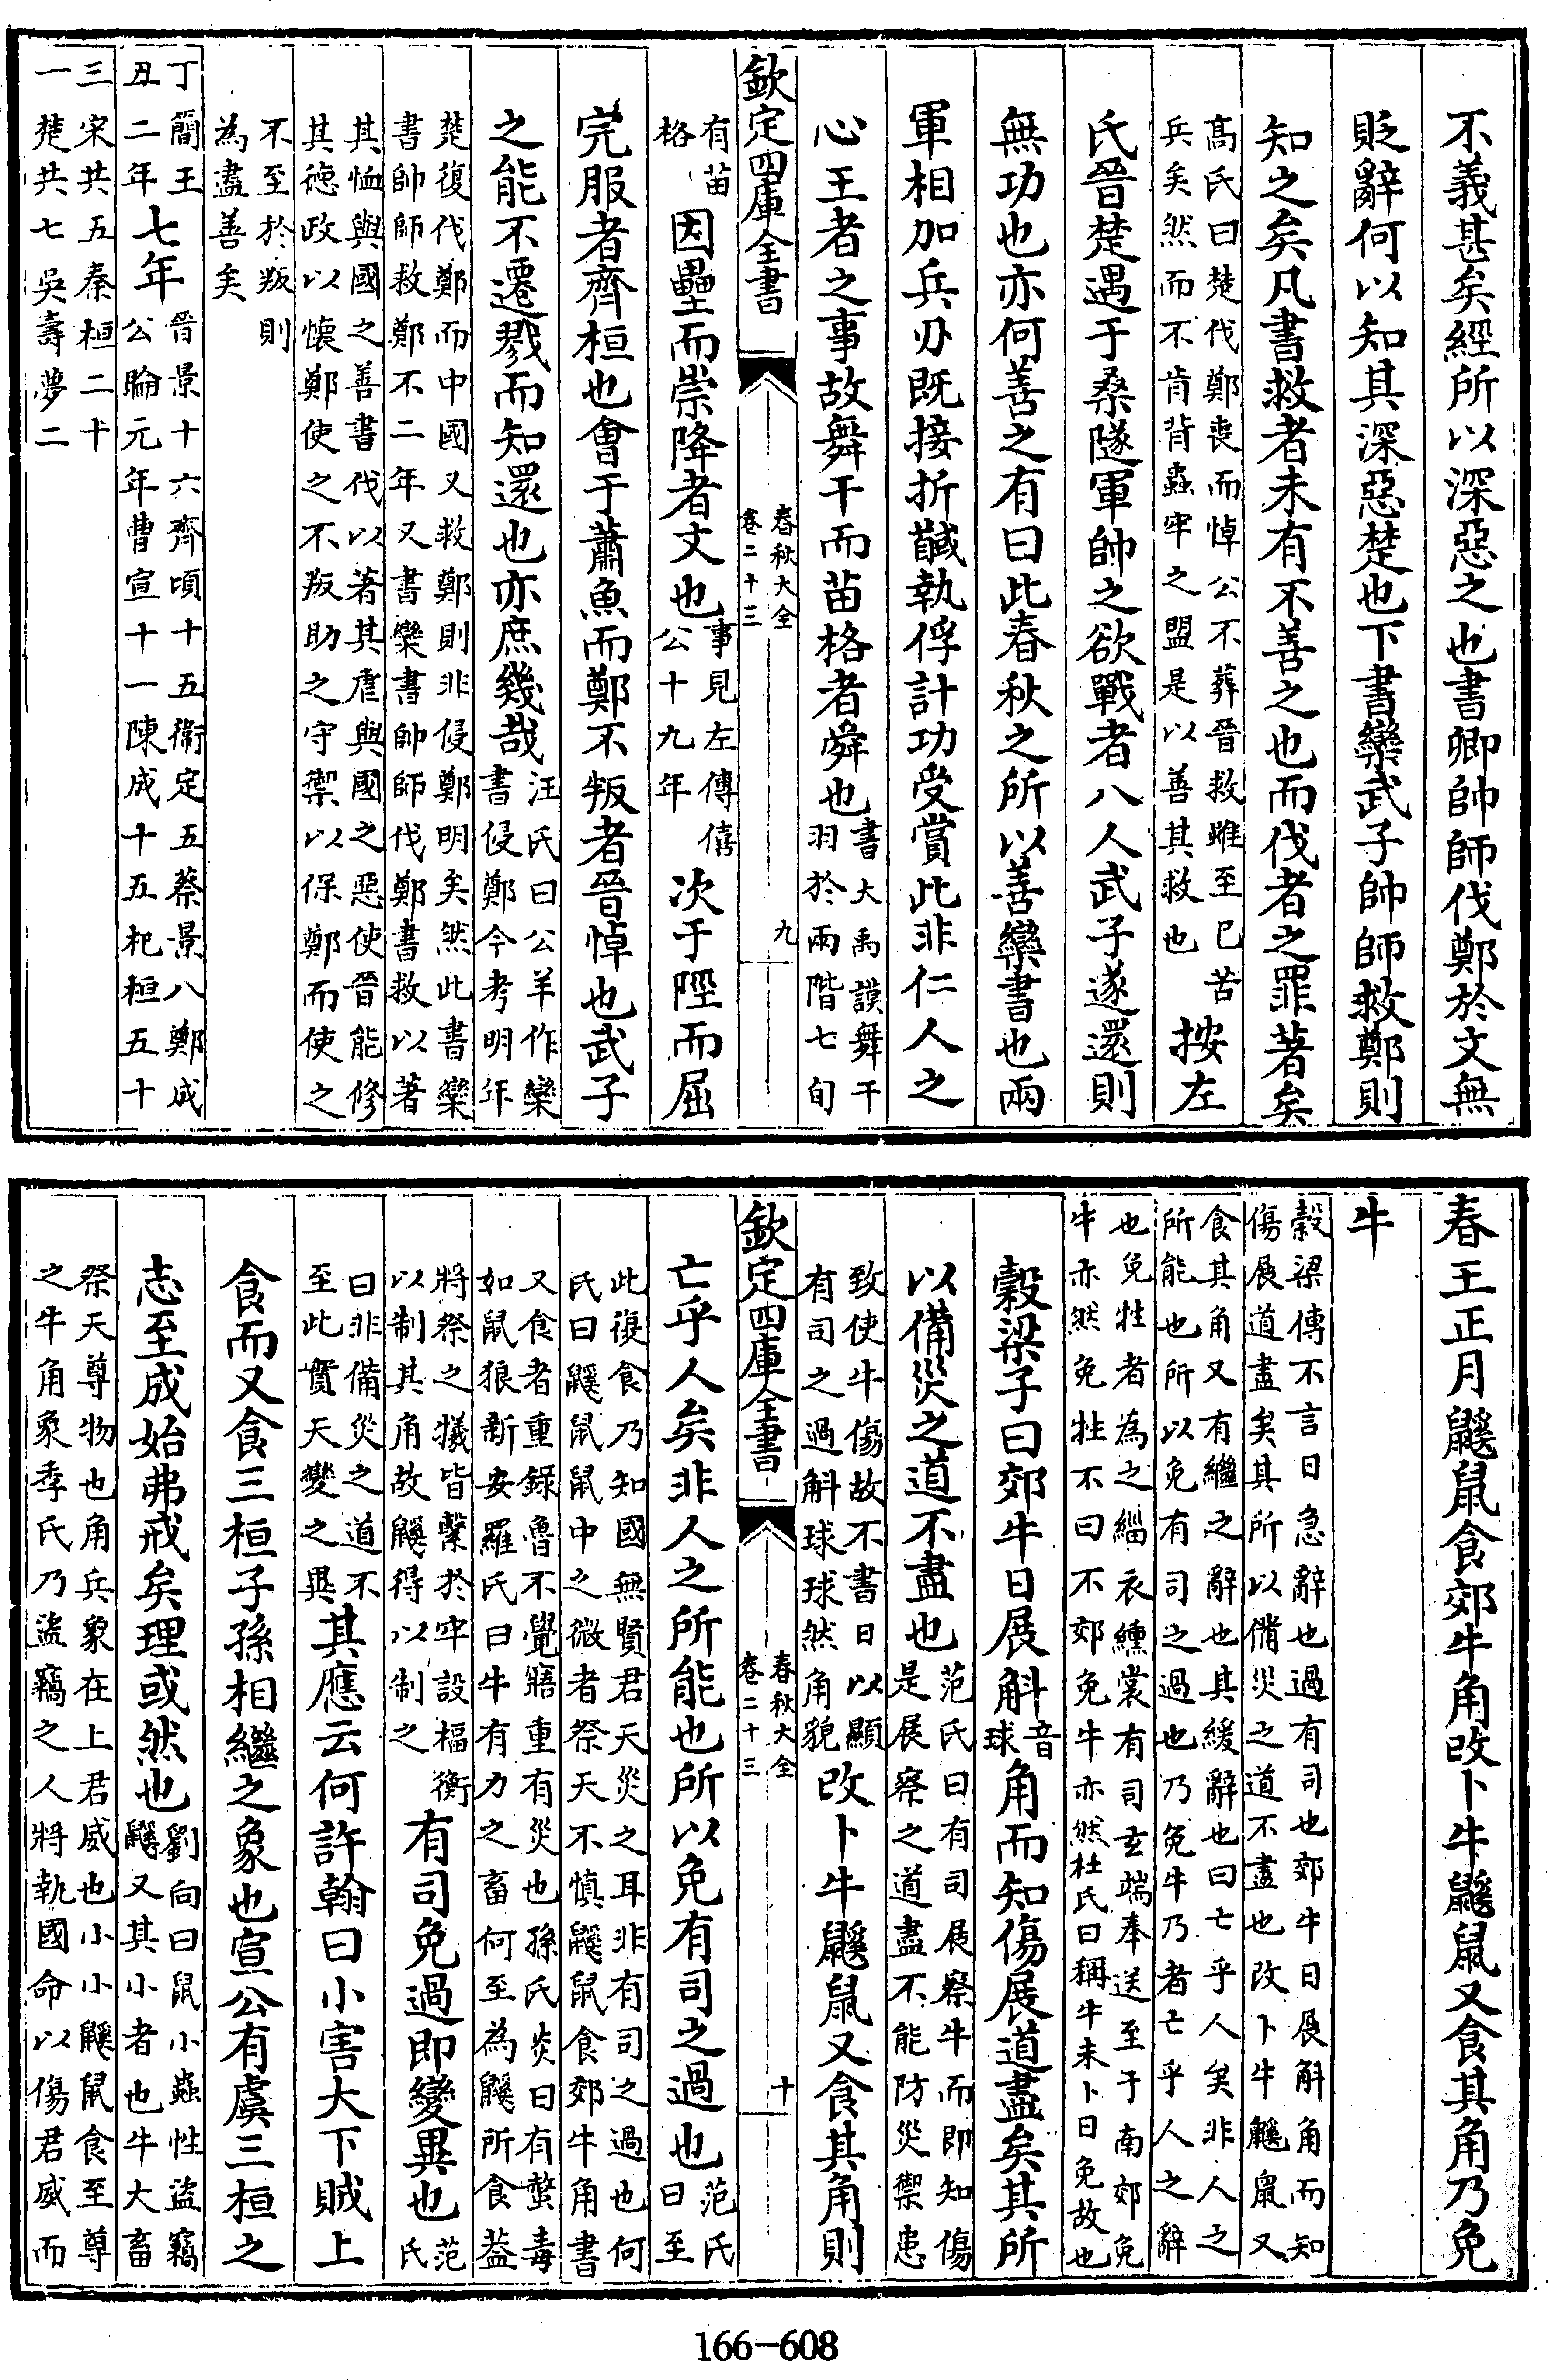 不義甚矣經所以深惡之也書卿帥師伐鄭於文無
貶辭何以知其深惡楚也下書欒武子帥師救鄭則
知之矣凡書救者未有不善之也而伐者之罪著矣
髙氏曰楚伐鄭喪而悼公不葬晉救雖至已苦
兵矣然而不肯背蟲牢之盟是以善其救也
按左
氏晉楚遇于桑隧軍帥之欲戰者八人武子遂還則
無功也亦何善之有曰此春秋之所以善欒書也兩
軍相加兵刃既接折馘執俘計功受賞此非仁人之
心王者之事故舞干而苗格者舜也
書大禹謨舞干
羽於兩階七旬
欽定四庫全書
春秋大全
卷二十三
九
有苗
格
因壘而崇降者文也
事見左傳僖
公十九年
次于陘而屈
完服者齊桓也會于蕭魚而鄭不叛者晉悼也武子
之能不遷戮而知還也亦庶幾哉
汪氏曰公羊作欒
書侵鄭今考明年
楚復伐鄭而中國又救鄭則非侵鄭明矣然此書欒
書帥師救鄭不二年又書欒書帥師伐鄭書救以著
其恤與國之善書伐以著其虐與國之惡使晉能修
其徳政以懷鄭使之不叛助之守禦以保鄭而使之
不至於叛則
為盡善矣
丁簡王
丑二年
七年
晉景十六齊頃十五衛定五蔡景八鄭成
公睔元年曹宣十一陳成十五杞桓五十
三宋共五秦桓二十
一楚共七吳壽夢二
春王正月鼷鼠食郊牛角改卜牛鼷鼠又食其角乃免
牛
榖梁傳不言日急辭也過有司也郊牛日展斛角而知
傷展道盡矣其所以備災之道不盡也改卜牛鼷鼠又
食其角又有繼之辭也其緩辭也曰亡乎人矣非人之
所能也所以免有司之過也乃免牛乃者亡乎人之辭
也免牲者為之緇衣纁裳有司玄端奉送至于南郊免
牛亦然免牲不曰不郊免牛亦然杜氏曰稱牛未卜日免故也
榖梁子曰郊牛日展斛
音
球
角而知傷展道盡矣其所
以備災之道不盡也
范氏曰有司展察牛而即知傷
是展察之道盡不能防災禦患
致使牛傷故不書日以顯
有司之過斛球球然角貌
改卜牛鼷鼠又食其角則
欽定四庫全書
春秋大全
卷二十三
十
亡乎人矣非人之所能也所以免有司之過也
范氏
曰至
此復食乃知國無賢君天災之耳非有司之過也何
氏曰鼷鼠鼠中之微者祭天不慎鼷鼠食郊牛角書
又食者重錄魯不覺寤重有災也孫氏炎曰有螫毒
如鼠狼新安羅氏曰牛有力之畜何至為鼷所食蓋
將祭之犧皆繫於牢設楅衡
以制其角故鼷得以制之
有司免過即變異也
范
氏
曰非備災之道不
至此實天變之異
其應云何許翰曰小害大下賊上
食而又食三桓子孫相繼之象也宣公有虞三桓之
志至成始弗戒矣理或然也
劉向曰鼠小蟲性盜竊
鼷又其小者也牛大畜
祭天尊物也角兵象在上君威也小小鼷鼠食至尊
之牛角象季氏乃盜竊之人將執國命以傷君威而
166-608